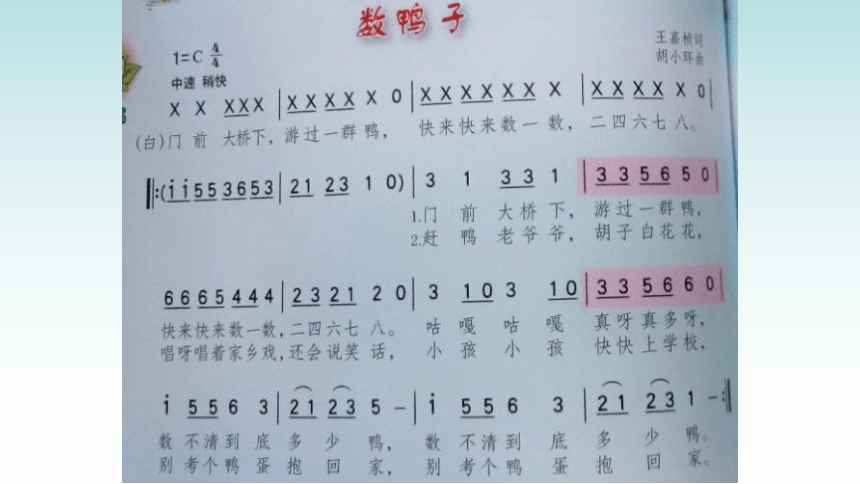 数鸭子
1=C 4/4
王嘉桢词
胡小环曲
中速 稍快
X X XXX | XXXX X 0 | XXXXXX X | XXXX X 0 |
(白)门 前 大桥下, 游过一群鸭, 快来快来数一数, 二四六七八。
‖:(i i 5 5 3 6 5 3 | 2 1 2 3 1 0) | 3 1 3 3 1 | 3 3 5 6 5 0 |
1.门 前 大桥下, 游过一群鸭,
2.赶 鸭 老爷爷, 胡子白花花,
6 6 6 5 4 4 4 | 2 3 2 1 2 0 | 3 1 0 3 1 0 | 3 3 5 6 6 0 |
快来快来数一数, 二四六七八。 咕 嘎 咕 嘎 真呀真多呀,
唱呀唱着家乡戏, 还会说笑话, 小孩小孩 快快上学校,
i 5 5 6 3 | 2 1 2 3 5 – | i 5 5 6 3 | 2 1 2 3 1 – :‖
数不清到底多少鸭, 数不清到底多少鸭。
别考个鸭蛋抱回家, 别考个鸭蛋抱回家。